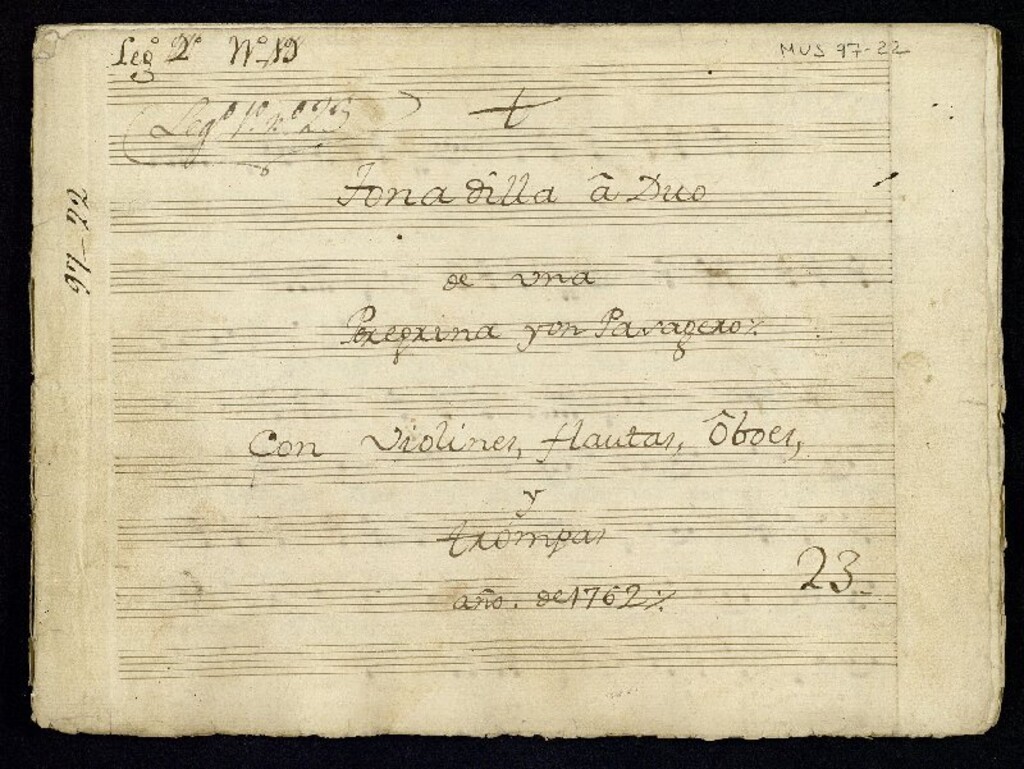 Leg.º 2.º N.º 13
MUS 97-22
Leg.º 1.º n.º 23
Tonadilla â Duo
de vna
Peregrina y vn Pasagero
Con Violines, flautas, Ôboes,
y
trompas
año. de 1762
23